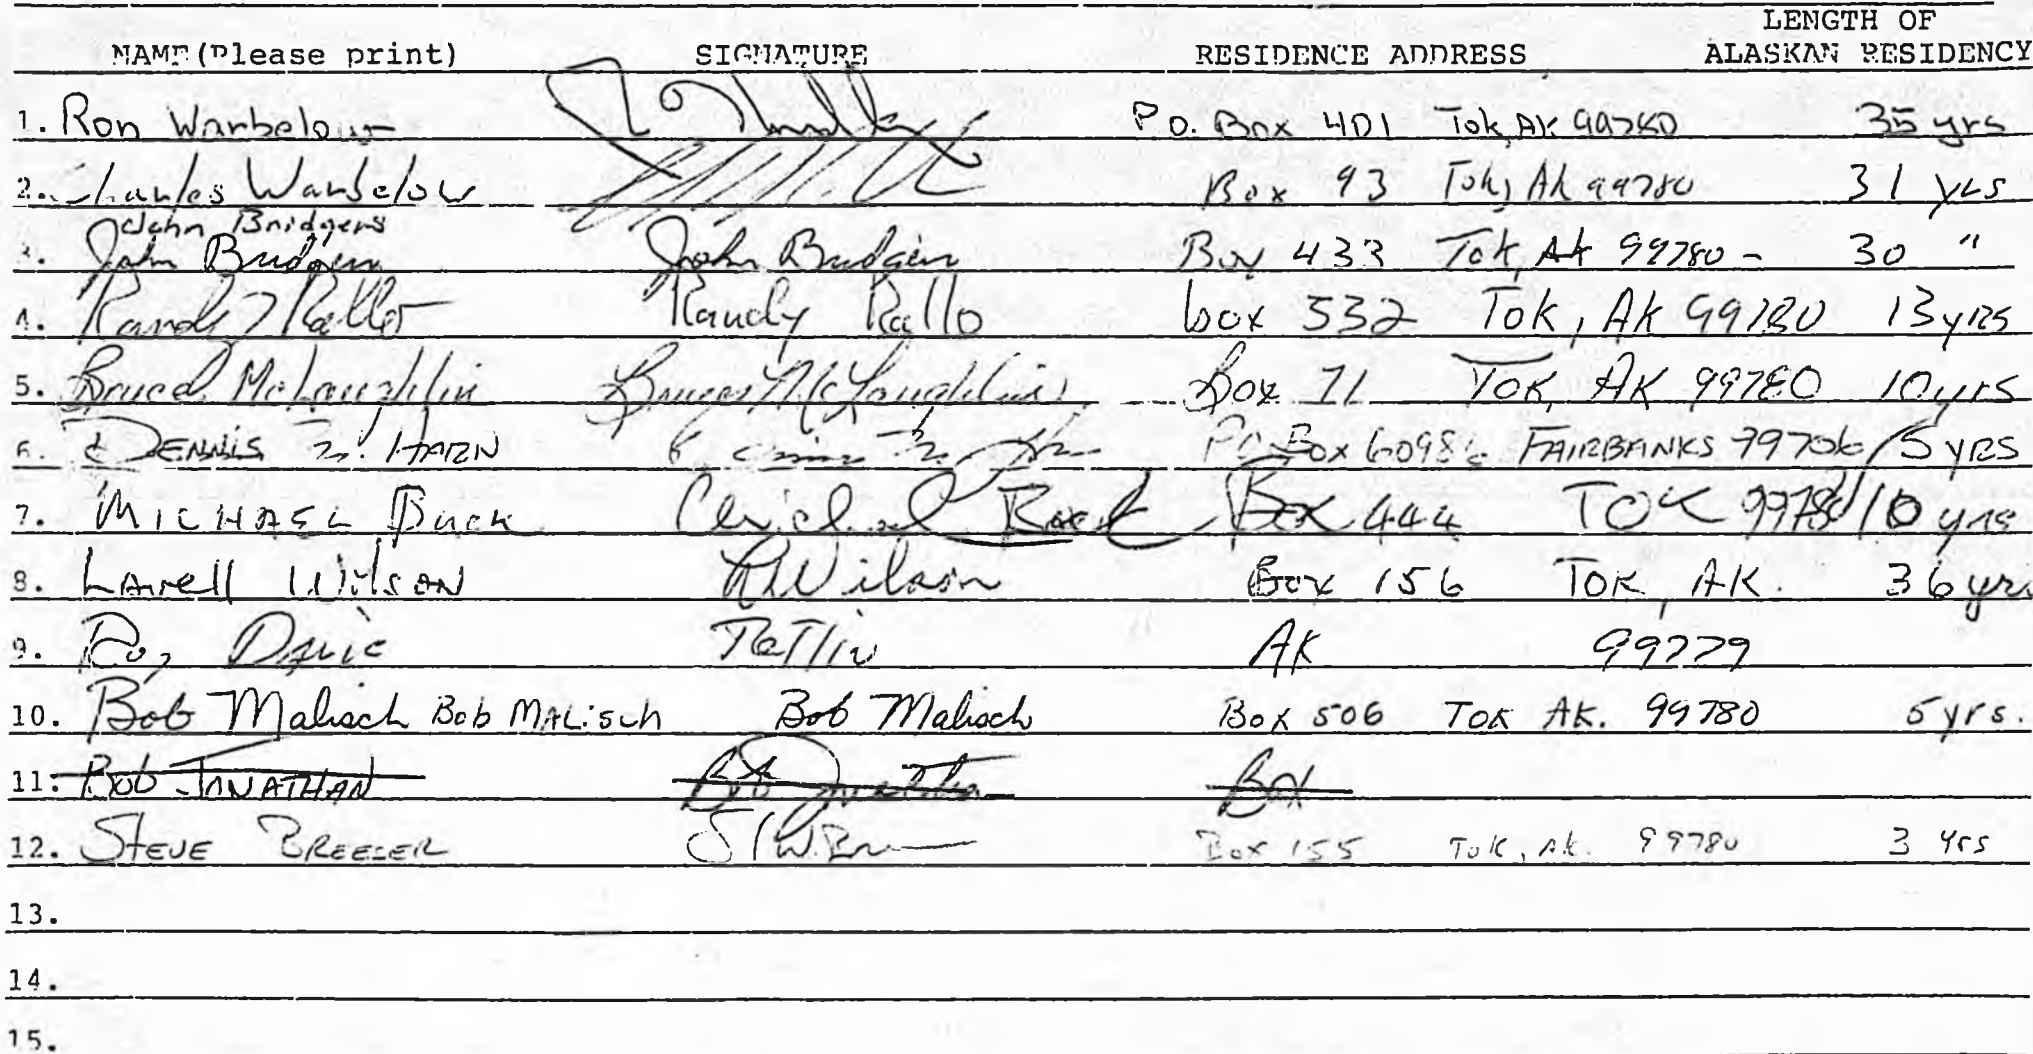 LENGTH OF
NAME (Please print) SIGNATURE RESIDENCE ADDRESS ALASKAN RESIDENCY
1. Ron Warbelow P.O. Box 401 Tok, AK 99780 35 yrs
2. Charles Warbelow Box 93 Tok, Ak 99780 31 yrs
John Bridgers
3. John Bridgers John Bridgers Box 433 Tok, Ak 99780 - 30 "
4. Randy Rallo Randy Rallo box 532 Tok, AK 99780 13 yrs
5. Bruce McLaughlin Bruce McLaughlin Box 71 Tok, AK 99780 10 yrs
6. DENNIS HARN PO Box 60986 FAIRBANKS 99706 15 YRS
7. MICHAEL Buck Michael Buck Box 444 TOK 99780 10 yrs
8. Lavell Wilson LWilson Box 156 TOK, AK. 36 yrs
9. Roy David Tetlin AK 99779
10. Bob Malisch Bob MALisch Bob Malisch Box 506 TOK AK. 99780 5 yrs.
11. Bob JONATHAN Bob Jonathan Box
12. STEVE BREESER Box 155 Tok, Ak. 99780 3 Yrs
13.
14.
15.